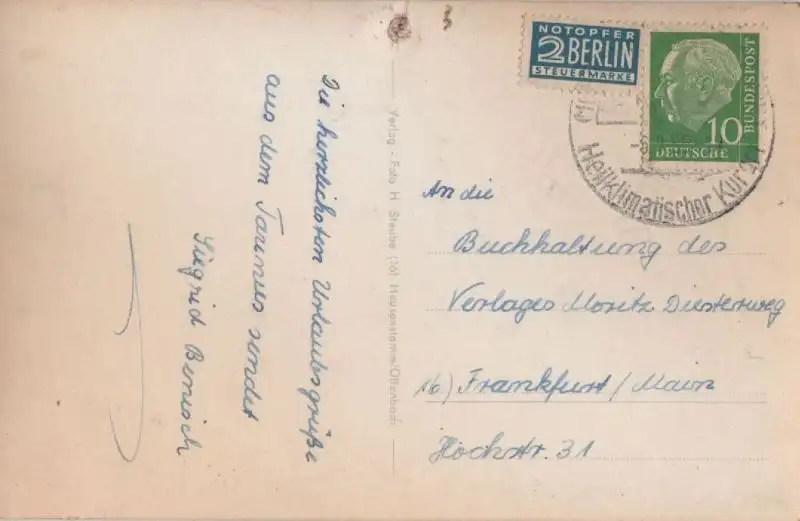 Die herzlichsten Urlaubsgrüße
aus dem Taunus sendet
Siegrid Benisch
Verlag - Foto H. Steube (16) Heusenstamm/Offenbach
NOTOPFER
2 BERLIN
STEUERMARKE
DEUTSCHE
BUNDESPOST
10
Heilklimatischer
An die
Buchhaltung des
Verlages Moritz Diesterweg
16) Frankfurt/Main
Hochstr. 31